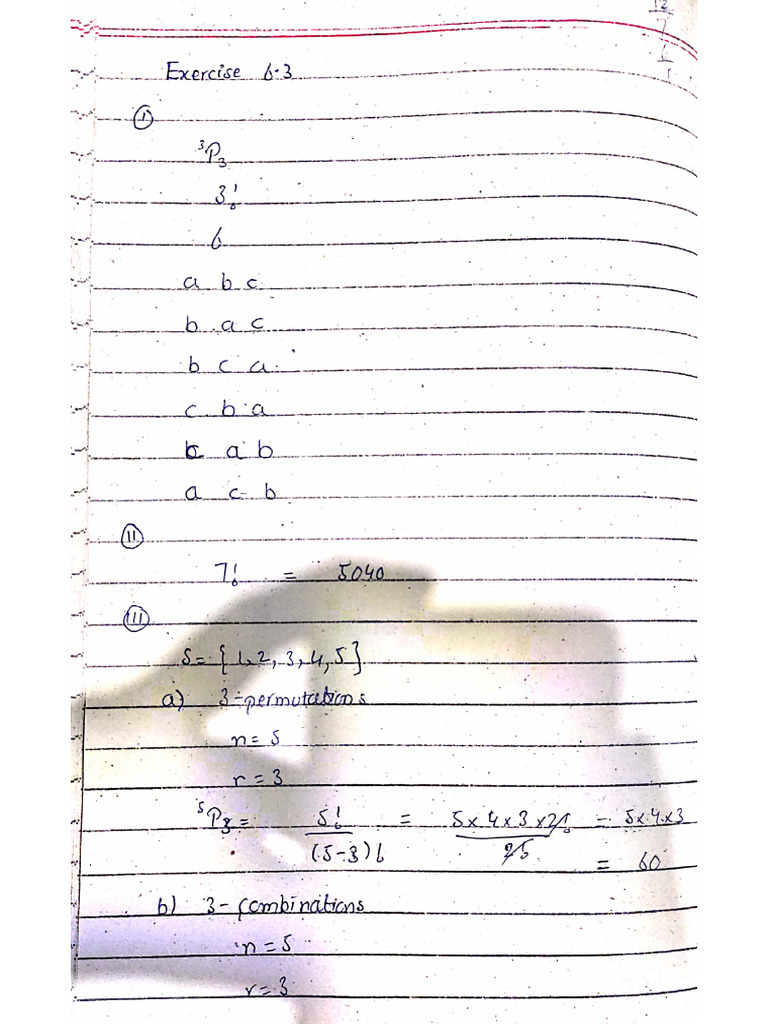 12
Exercise 6.3
(I)
³P₃
3!
6
a b c
b a c
b c a
c b a
c a b
a c b
(II)
7! = 5040
(III)
S = {1, 2, 3, 4, 5}
a) 3-permutations
n = 5
r = 3
⁵P₃ = 5!/(5-3)! = 5×4×3×2!/2! = 5×4×3
= 60
b) 3-combinations
n = 5
r = 3